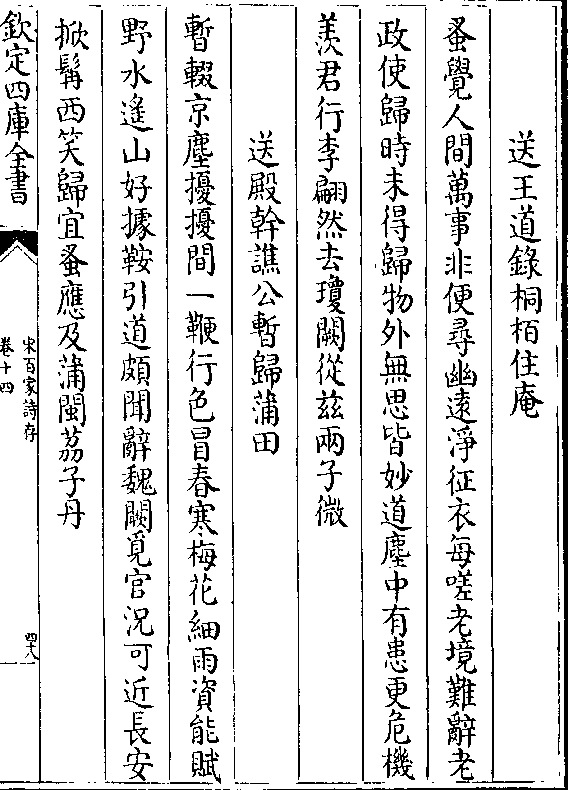 送王道錄桐栢住庵
蚤覺人間萬事非便尋幽遠淨征衣每嗟老境難辭老
政使歸時未得歸物外無思皆妙道塵中有患更危機
羨君行李翩然去瓊闕從兹兩子微
送殿幹譙公暫歸蒲田
暫輟京塵擾擾間一鞭行色冒春寒梅花細雨資能賦
野水遙山好據鞍引道頗聞辭魏闕覓官況可近長安
掀髯西笑歸宜蚤應及蒲閩荔子丹
欽定四庫全書
宋百家詩存
卷十四
四十八